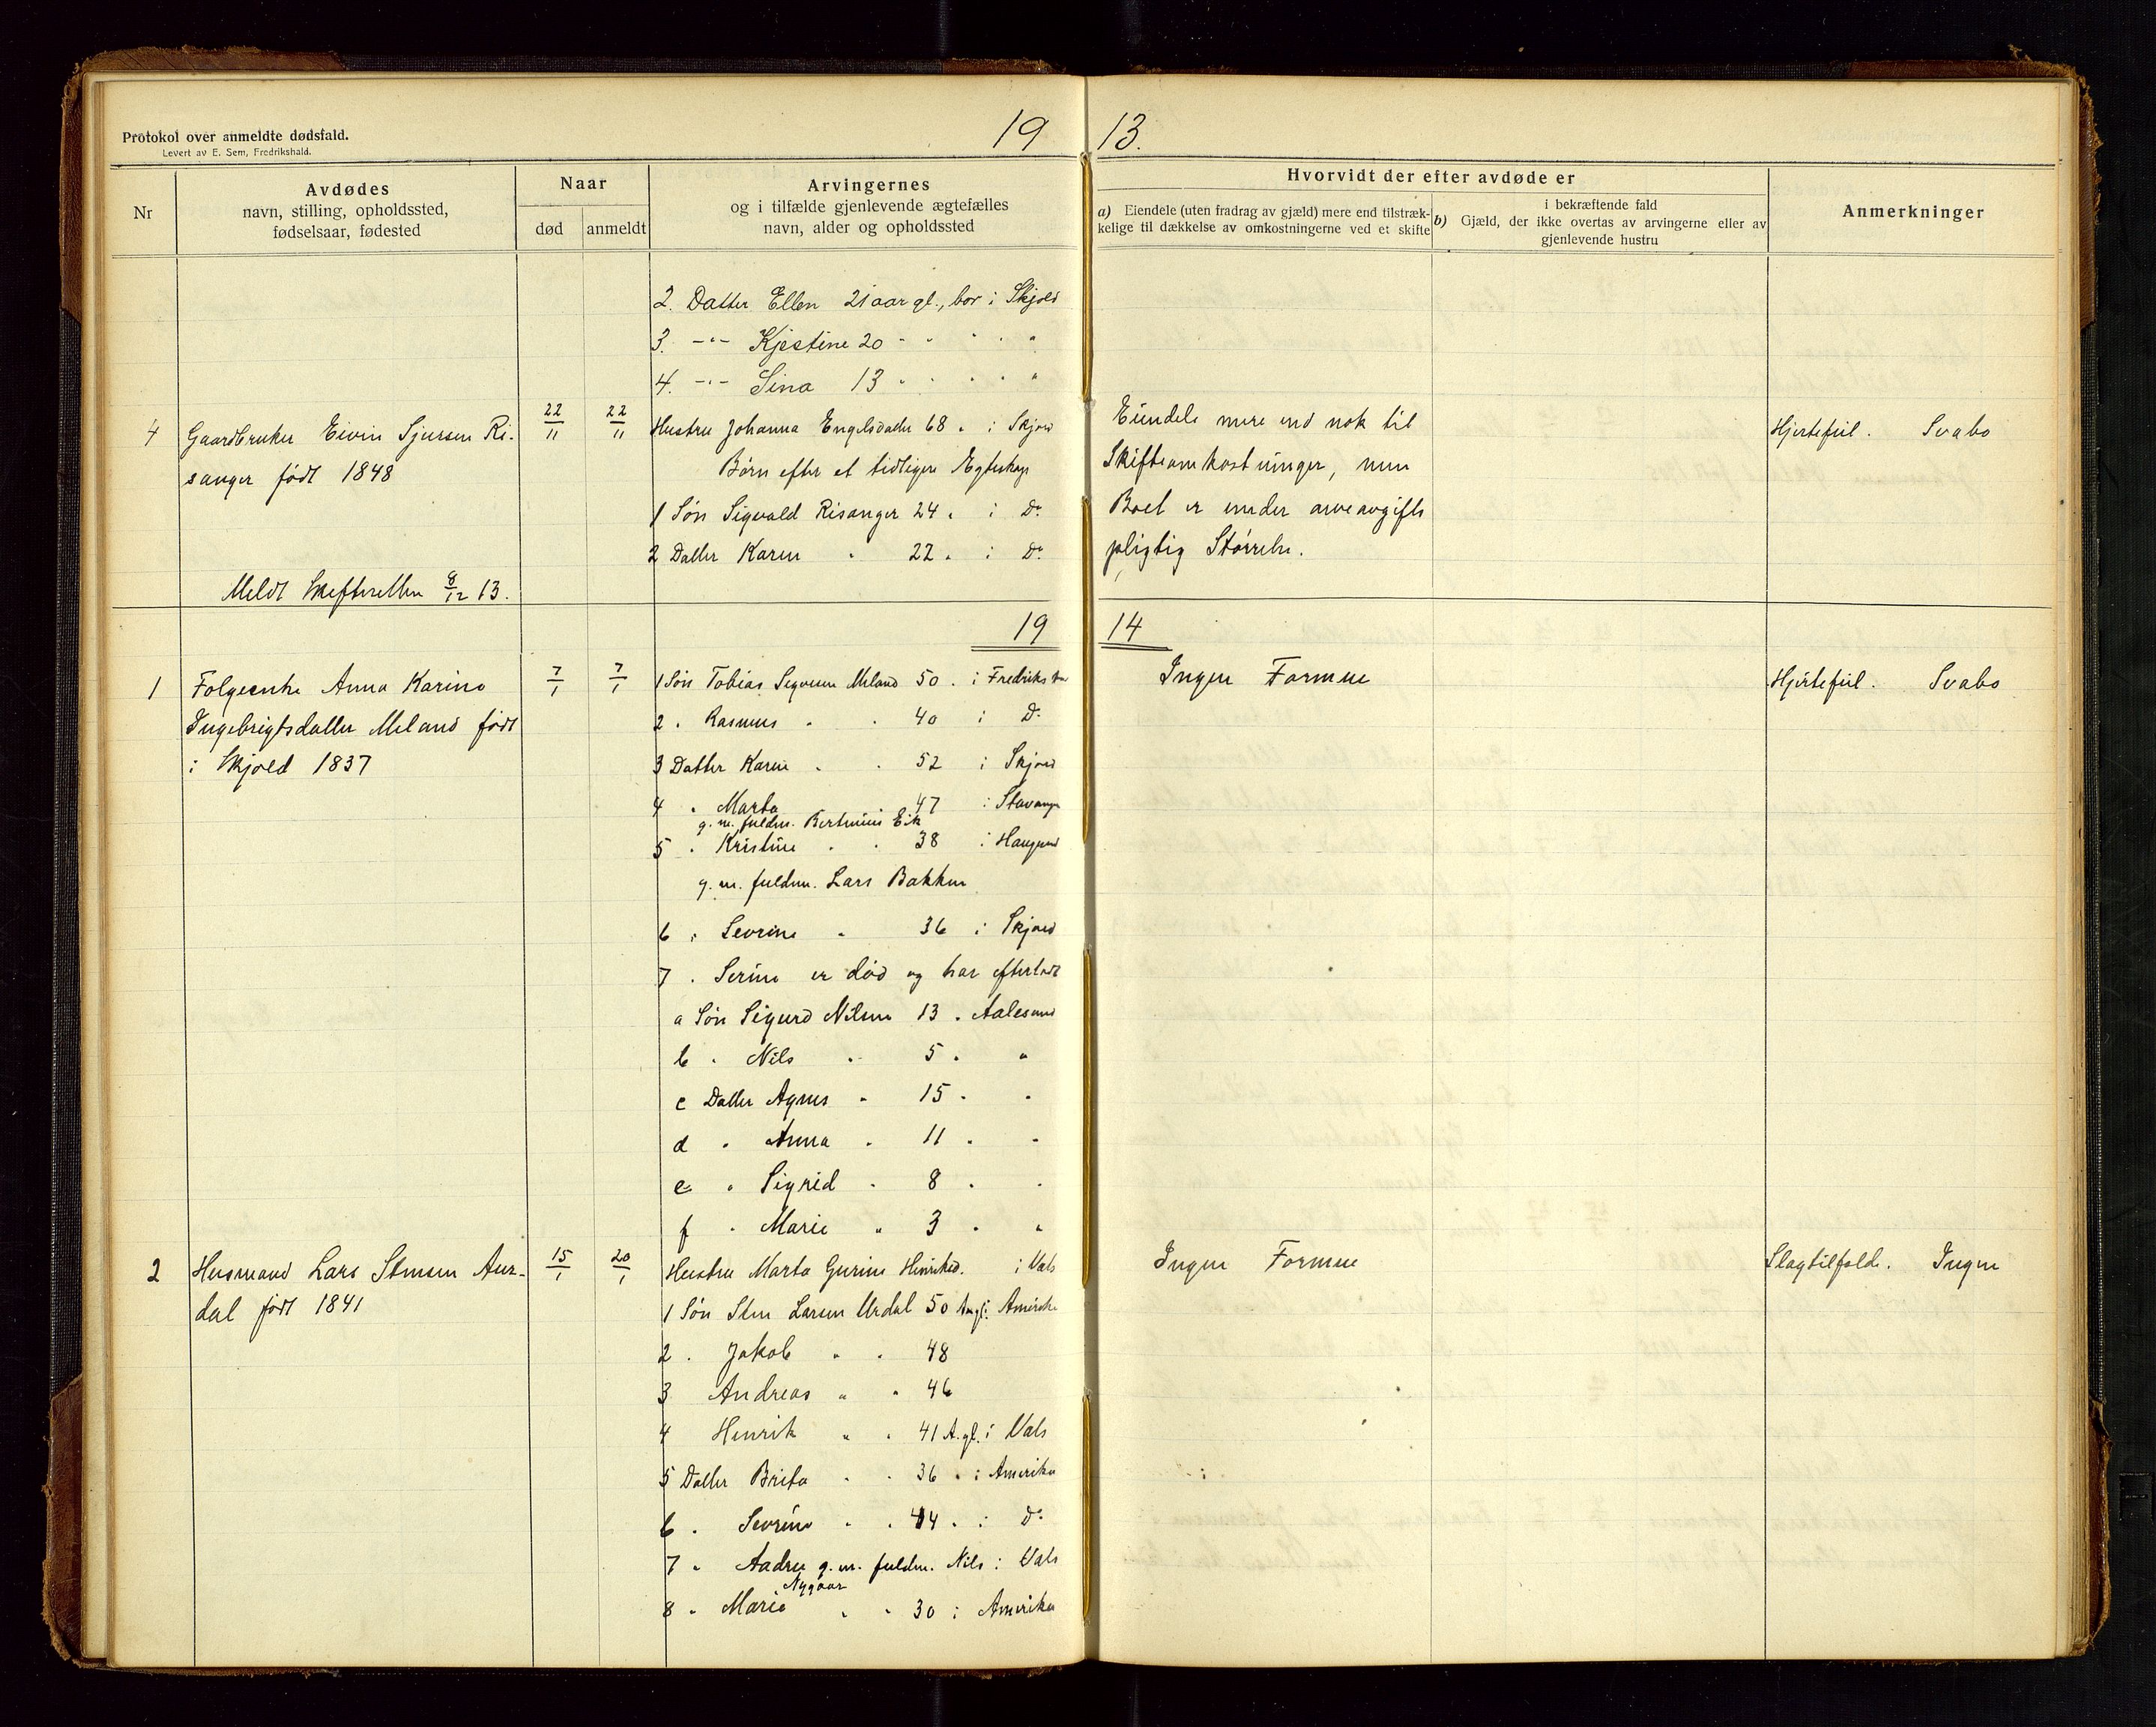 Protokol over anmeldte dødsfald.
Levert av E. Sem, Fredrikshald.
19 13.
Nr
Avdødes
navn, stilling, opholdssted,
fødselsaar, fødested
Naar
død anmeldt
Arvingernes
og i tilfælde gjenlevende ægtefælles
navn, alder og opholdssted
Hvorvidt der efter avdøde er
a) Eiendele (uten fradrag av gjæld) mere end tilstræk-
kelige til dækkelse av omkostningerne ved et skifte
i bekræftende fald
b) Gjæld, der ikke overtas av arvingerne eller av
gjenlevende hustru
Anmerkninger
2. Datter Ellen 21 aar gl., bor i Skjold
3. -"- Kjestine 20 " " " " "
4. -"- Sina 13 " " " " "
4 Gaardbruker Eivin Sjursen Ri-
sanger født 1848
Meldt Skifteretten 8/12 13.
22/11 22/11
Hustru Johanna Engelsdatter 68 " i Skjold
Børn efter et tidligere Egteskap
1 Søn Sigvald Risanger 24 " i Do
2 Datter Karen " 22 " i Do
Eiendele mere end nok til
Skifteomkostninger, men
Boet er under arveavgifts
pligtig Størrelse.
Hjertefeil. Svabo
19 14
1 Folgeenke Anna Karine
Ingebrigtsdatter Meland født
i Skjold 1837
7/1 7/1
1 Søn Tobias Meland 50 " i Fredrikstad
2 " Rasmus " " 40 i Do
3 Datter Karen " " 52 i Skjold
4 " Marta 47 i Stavanger
g. m. fuldm. Eik
5 " Kristine " " 38 i Haugesund
g. m. fuldm. Lars Bakken
6 " Sevrine " 36 i Skjold
7 " Serine er død og har efterladt
a Søn Sigurd Nilsen 13 " Aalesund
b " Nils " 5 " "
c Datter Agnes " 15 " "
d " Anna " 11 " "
e " Sigrid " 8 " "
f " Marie " 3 " "
Ingen Formue
Hjertefeil. Svabo
2 Husmand Lars Stensen Aur-
dal født 1841
15/1 20/1
Hustru Marta Gurine Henriksd. i Vats
1 Søn Sten Larsen Urdal 50 A.gl. i Amerika
2 " Jakob " " 48
3 Andreas " " 46
4 Henrik " " 41 A.gl. i Vats
5 Datter Brita " " 36 " i Amerika
6 " Sevrine " " 44 " i Do
7 " g. m. fuldm. Nils i Vats
Nygaar
8 " Marie " " 30 i Amerika
Ingen Formue
Slagtilfælde. Ingen